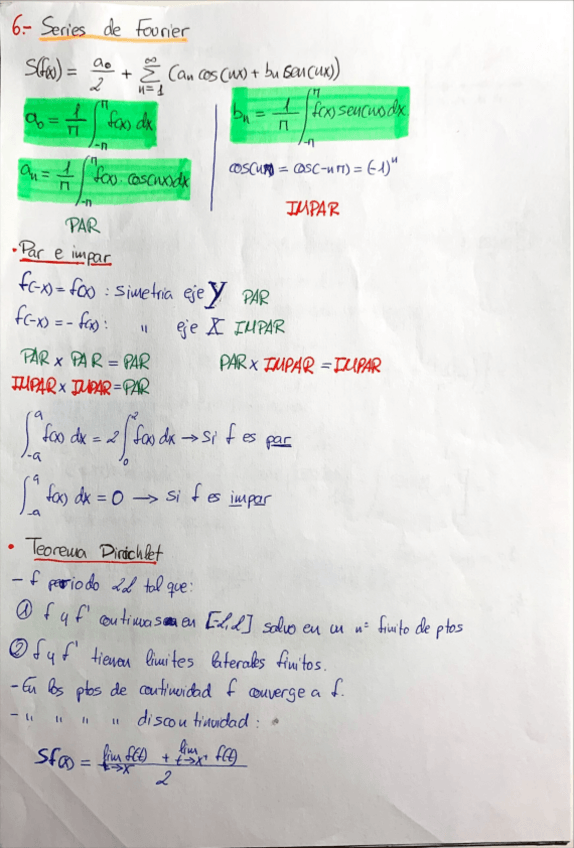 6.- Series de Fourier
S(f(x)) = a₀/2 + ∑_{n=1}^{∞} (aₙ cos(nx) + bₙ sen(nx))
a₀ = 1/π ∫_{-π}^{π} f(x) dx
aₙ = 1/π ∫_{-π}^{π} f(x) · cos(nx) dx
PAR
bₙ = 1/π ∫_{-π}^{π} f(x) sen(nx) dx
cos(nπ) = cos(-nπ) = (-1)ⁿ
IMPAR
• Par e impar
f(-x) = f(x) : simetria eje Y PAR
f(-x) = - f(x) : " eje X IMPAR
PAR x PAR = PAR PAR x IMPAR = IMPAR
IMPAR x IMPAR = PAR
∫_{-a}^{a} f(x) dx = 2 ∫_{0}^{2} f(x) dx → si f es par
∫_{-a}^{a} f(x) dx = 0 → si f es impar
• Teorema Dirichlet
- f periodo 2L tal que:
① f y f' continuas en [-L,L] salvo en un nº finito de ptos
② f y f' tienen limites laterales finitos.
- En los ptos de continuidad f converge a f.
- " " " " discontinuidad :
Sf(x) = (lim_{t→x⁻} f(t) + lim_{t→x⁺} f(t)) / 2